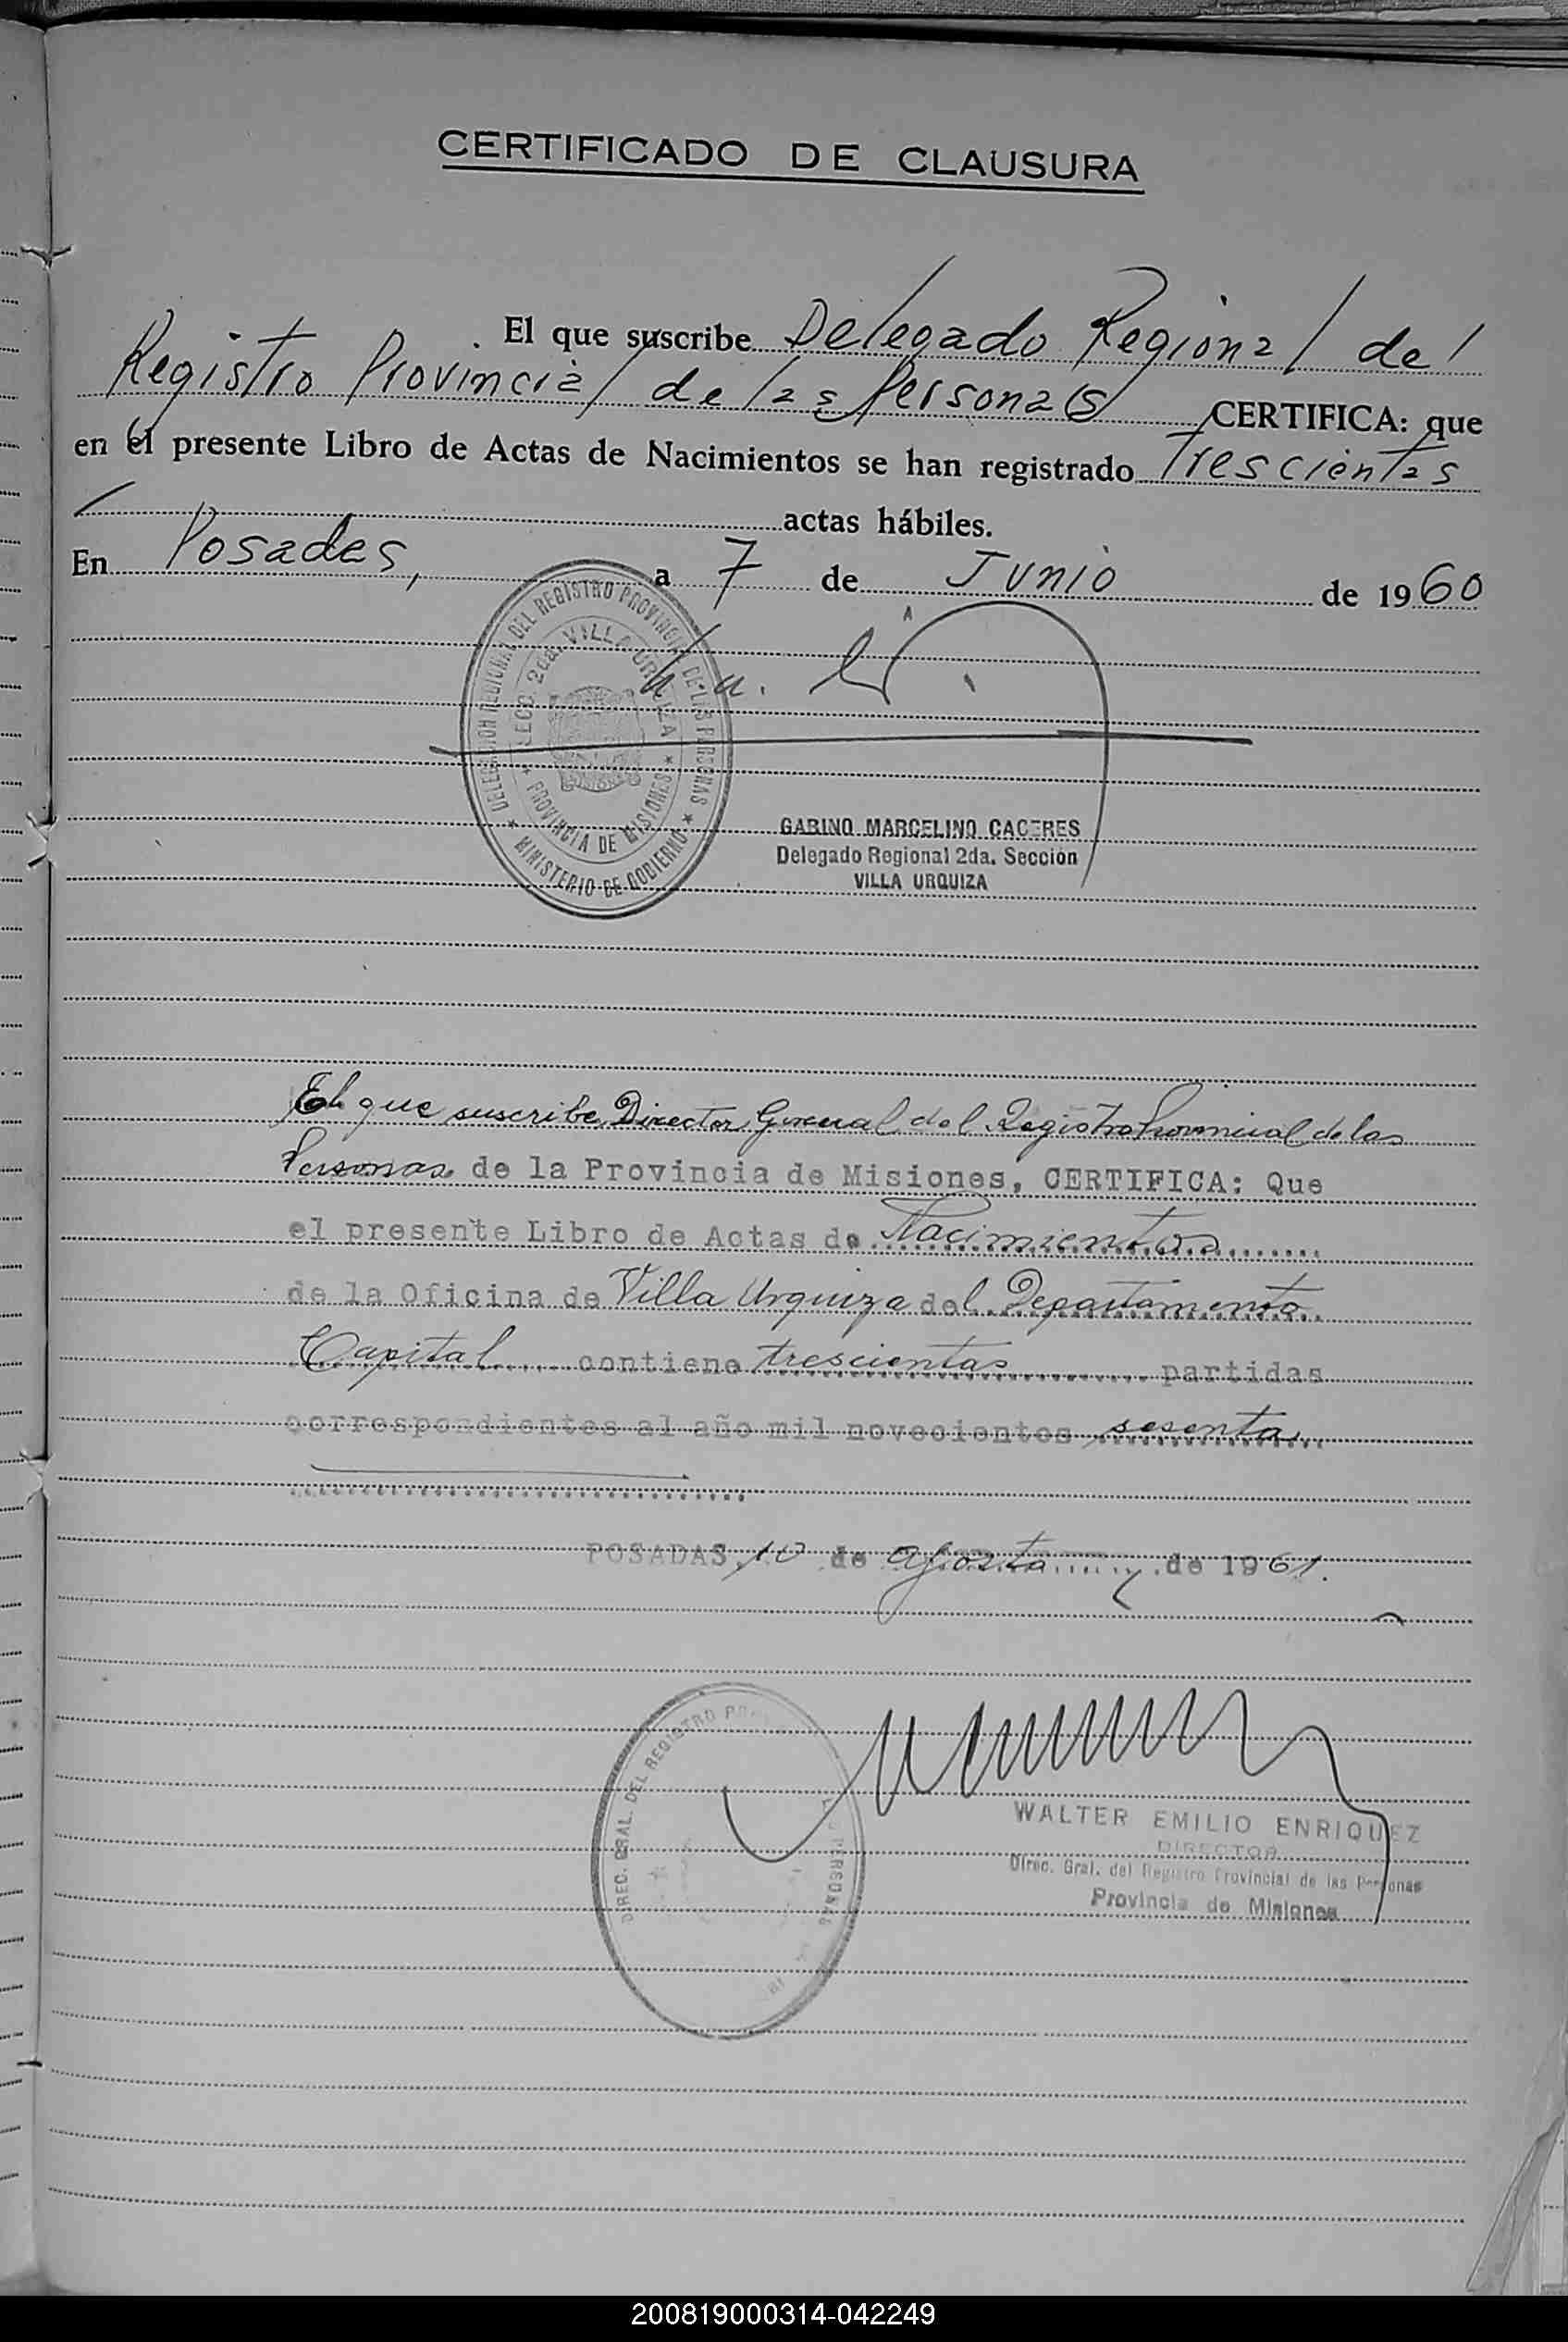 CERTIFICADO DE CLAUSURA
El que suscribe Delegado Regional del
Registro Provincial de las Personas CERTIFICA: que
en el presente Libro de Actas de Nacimientos se han registrado Trescientas
actas hábiles.
En Posadas, a 7 de Junio de 1960
DELEGACION REGIONAL DEL REGISTRO PROVINCIAL DE LAS PERSONAS
SECC. 2da. VILLA URQUIZA
PROVINCIA DE MISIONES
MINISTERIO DE GOBIERNO
GABINO MARCELINO CACERES
Delegado Regional 2da. Sección
VILLA URQUIZA
El que suscribe Director General del Registro Provincial de las
Personas de la Provincia de Misiones, CERTIFICA: Que
el presente Libro de Actas de Nacimientos
de la Oficina de Villa Urquiza del Departamento
Capital contiene trescientas partidas
correspondientes al año mil novecientos sesenta
POSADAS, 10 de agosto de 1961.
DIREC. GRAL. DEL REGISTRO PERSONAS
WALTER EMILIO ENRIQUEZ
DIRECTOR
Direc. Gral. del Registro Provincial de las Personas
Provincia de Misiones
200819000314-042249